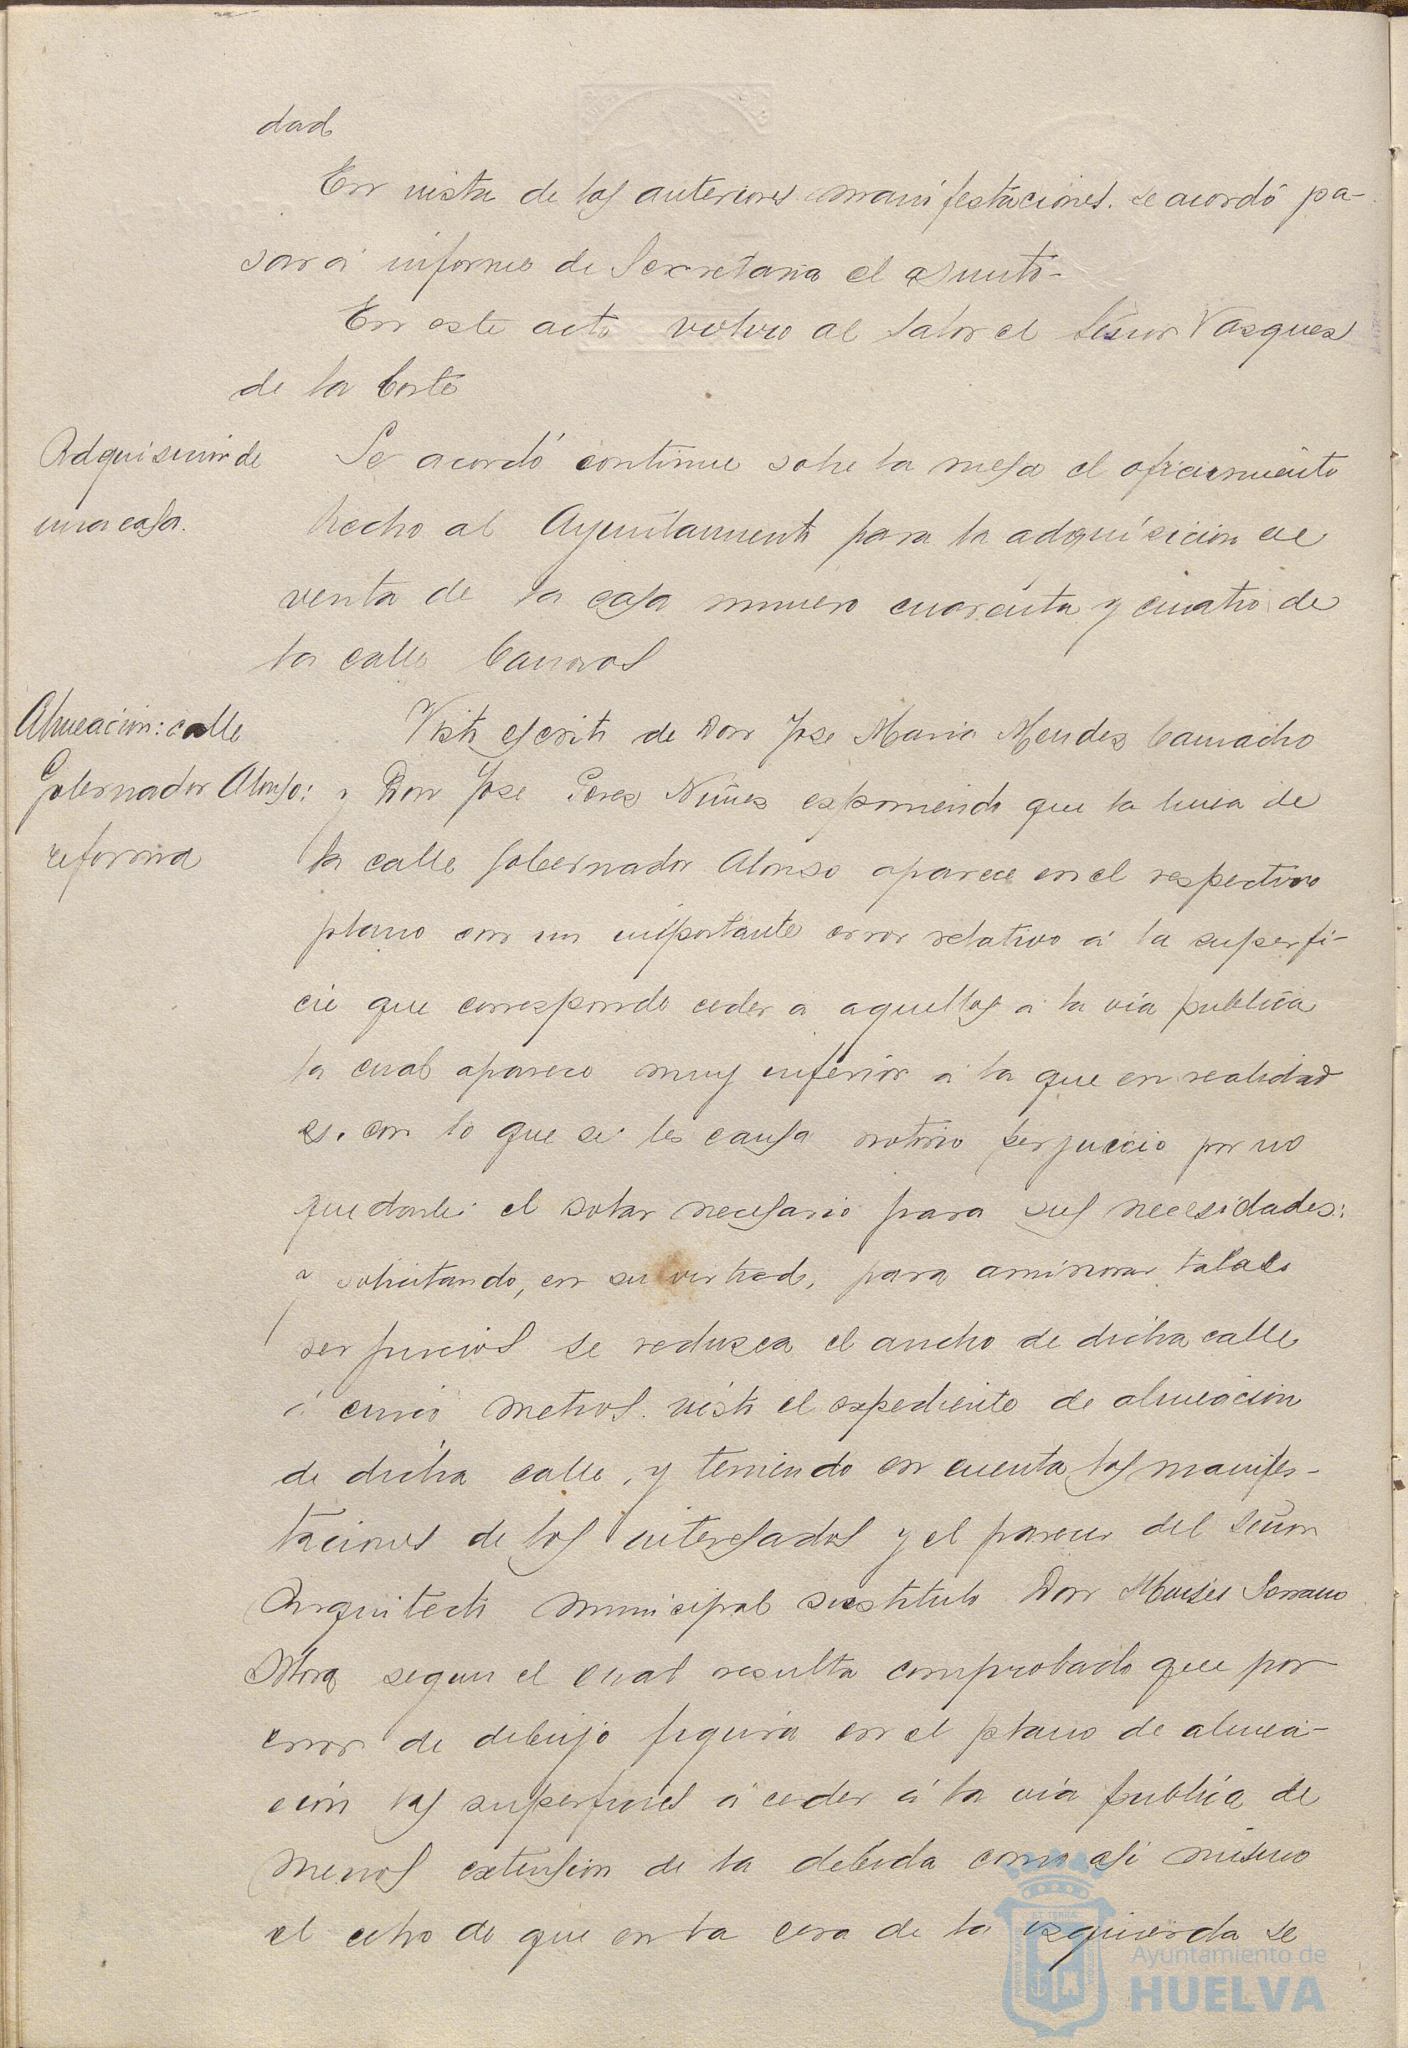 dad
En vista de las anteriores manifestaciones. se acordó pa-
sar á informe de Secretaria el asunto-
En este acto volvio al salon el Señor Vazquez
de la Corte
Adquisicion de
una casa.
Se acordó continue sobre la mesa el ofrecimiento
hecho al Ayuntamiento para la adquisicion en
venta de la casa numero cuarenta y cuatro de
la calle
Alineación: calle
Gobernador Alonso:
reforma
Visto escrito de Don Jose Maria Mendez Camacho
y Don Jose Perez Nuñez esponiendo que la linea de
la calle Gobernador Alonso aparece en el respectivo
plano con un importante error relativo á la superfi-
cie que corresponde ceder a aquellos á la via publica
la cual aparece muy inferior á la que en realidad
es. con lo que se les causa notorio perjuicio por no
quedarle el solar necesario para sus necesidades:
y solicitando, en su virtud, para aminorar tales
perjuicios se reduzca el ancho de dicha calle
á cinco metros. visto el expediente de alineacion
de dicha calle, y teniendo en cuenta las manifes-
taciones de los interesados y el parecer del Señor
Arquitecto municipal sustituto Don Moises Serrano
Mora segun el cual resulta comprobado que por
error de dibujo figura en el plano de alinea-
ción las superficies á ceder á la via publica de
menos extension de la debida como asi mismo
el echo de que en la cera de la izquierda se
Ayuntamiento de
HUELVA